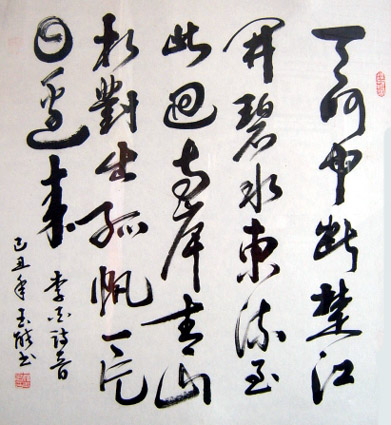 天門中斷楚江
開碧水東流至
此回兩岸青山
相對出孤帆一片
日邊來
李白詩
己丑年玉书